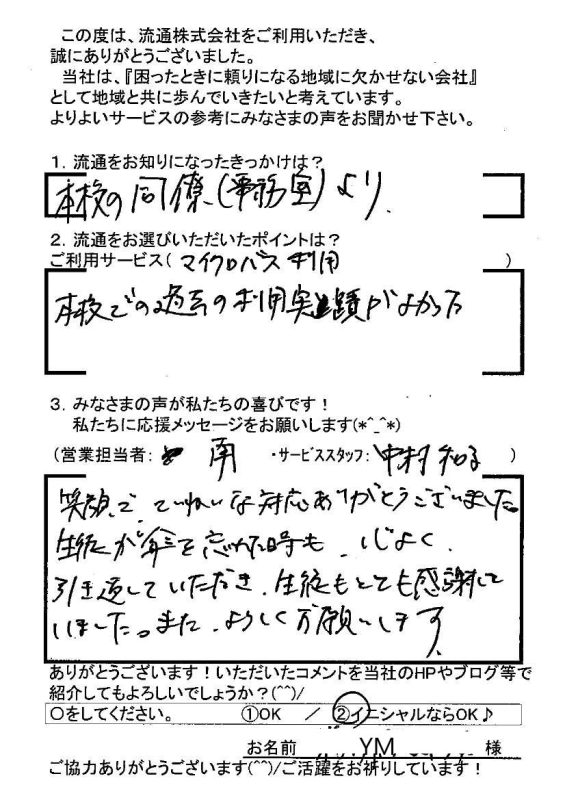 この度は、流通株式会社をご利用いただき、
誠にありがとうございました。
当社は、『困ったときに頼りになる地域に欠かせない会社』
として地域と共に歩んでいきたいと考えています。
よりよいサービスの参考にみなさまの声をお聞かせ下さい。
1．流通をお知りになったきっかけは？
本校の同僚(事務室)より.
2．流通をお選びいただいたポイントは？
ご利用サービス( マイクロバス利用 )
本校での過去の利用実績がよかった
3．みなさまの声が私たちの喜びです！
私たちに応援メッセージをお願いします(*^_^*)
(営業担当者: 南 ・サービススタッフ: 中村 )
笑顔で、ていねいな対応ありがとうございました。
生徒が傘を忘れた時も、心よく、
引き返していただき、生徒もとても感謝して
いました。また、よろしくお願いします
ありがとうございます！いただいたコメントを当社のHPやブログ等で
紹介してもよろしいでしょうか？(^^)/
〇をしてください。 ①OK ／ ②イニシャルならOK♪
お名前 YM 様
ご協力ありがとうございます(^^)/ご活躍をお祈りしています！